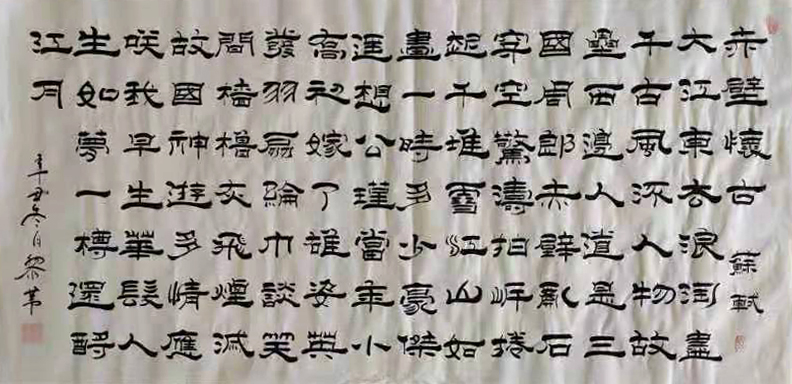 赤壁懷古 蘇軾
大江東去浪淘盡
千古風流人物故
壘西邊人道是三
國周郎赤壁亂石
穿空驚濤拍岸捲
起千堆雪江山如
畫一時多少豪傑
遥想公瑾當年小
喬初嫁了雄姿英
發羽扇綸巾談笑
間檣櫓灰飛煙滅
故國神遊多情應
咲我早生華髮人
生如夢一樽還酹
江月
辛丑冬日黎